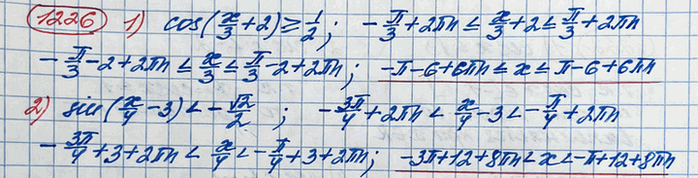 1226 1) cos(x/3+2)≥1/2; -π/3+2πn≤x/3+2≤π/3+2πn
-π/3-2+2πn≤x/3≤π/3-2+2πn; -π-6+6πn≤x≤π-6+6πn
2) sin(x/4-3)<-√2/2; -3π/4+2πn<x/4-3<-π/4+2πn
-3π/4+3+2πn<x/4<-π/4+3+2πn; -3π+12+8πn<x<-π+12+8πn